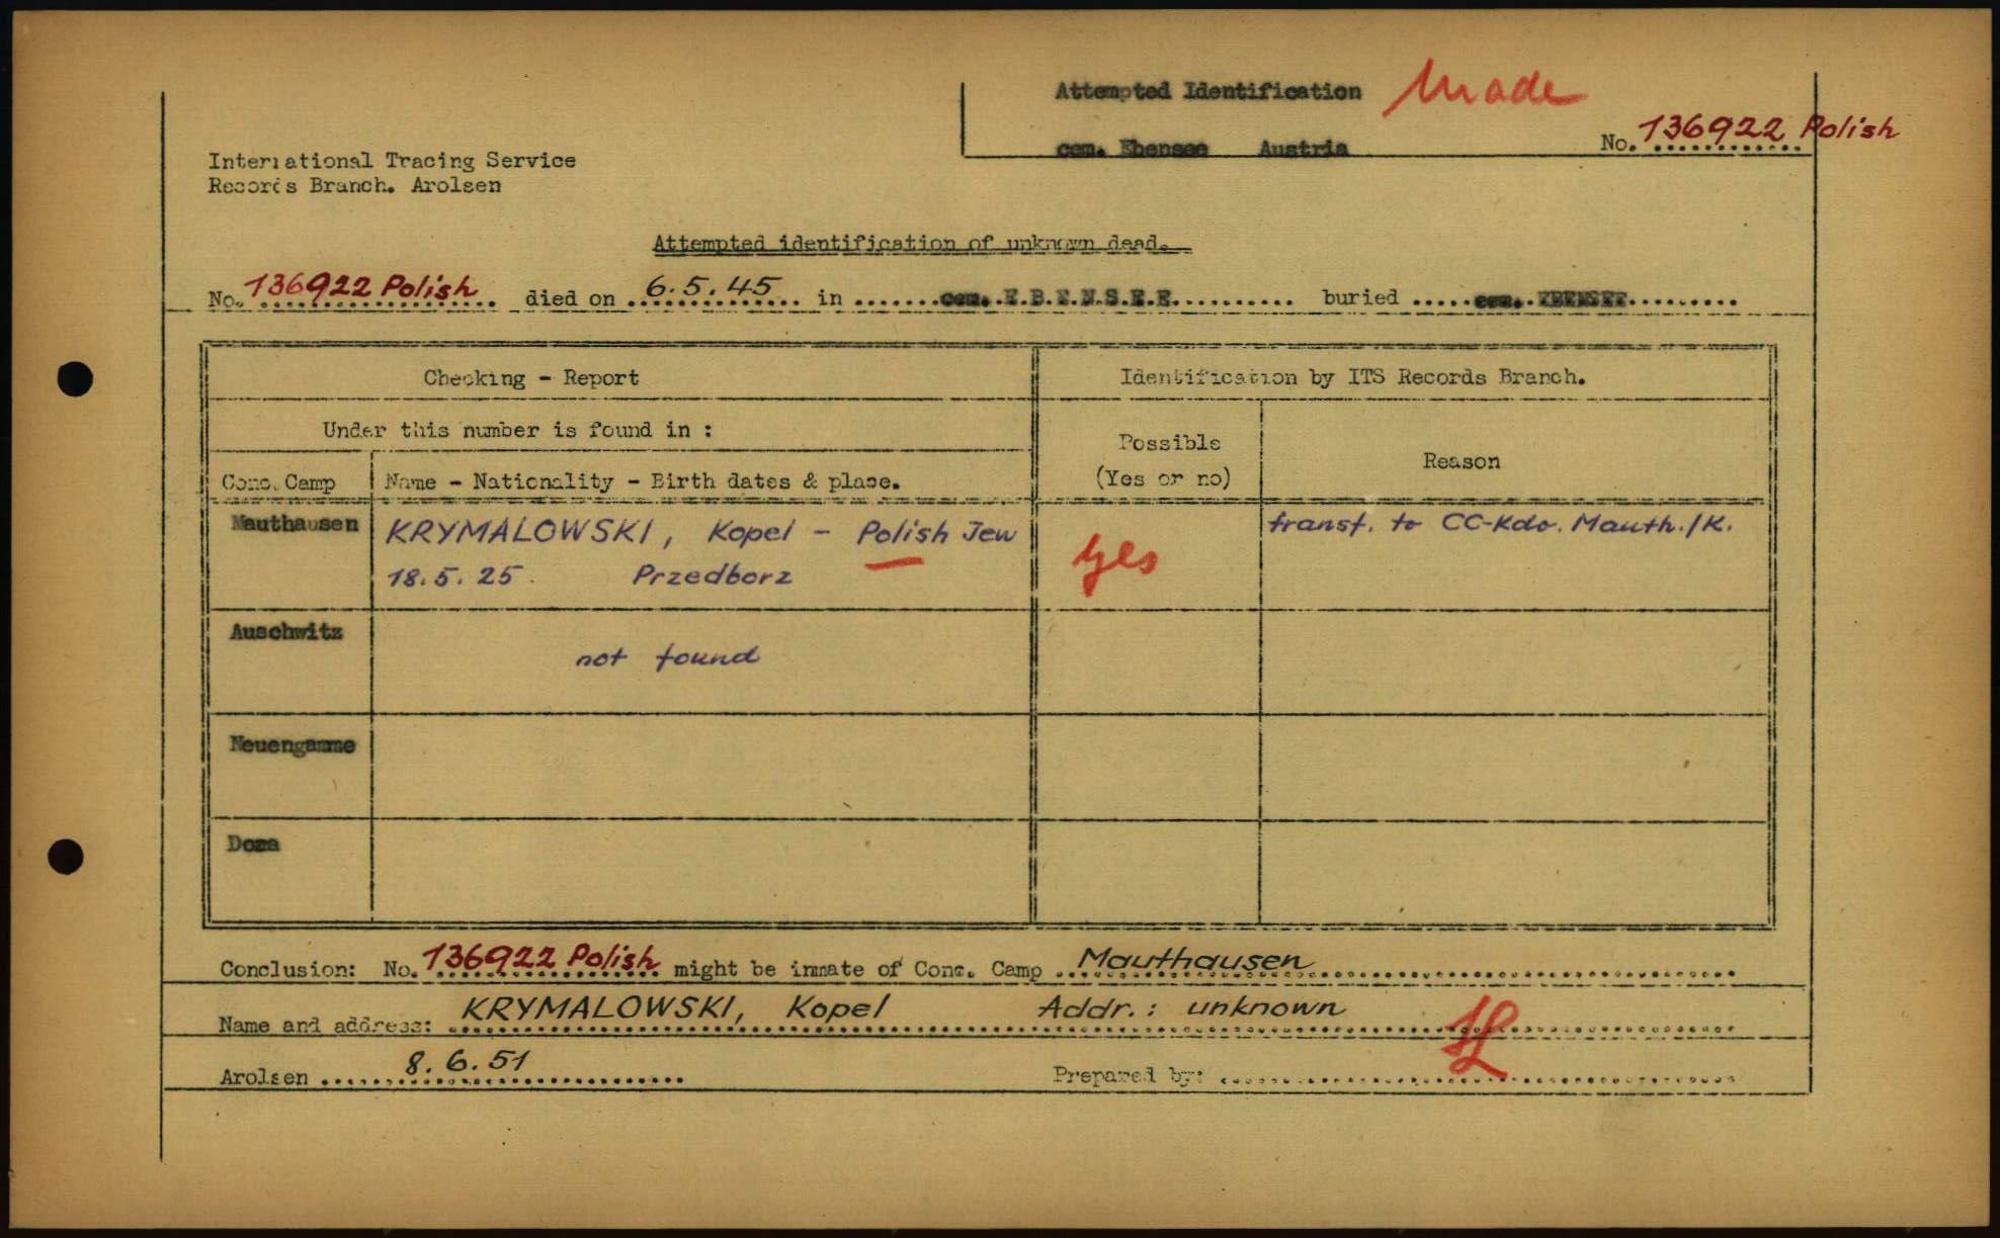 Attempted Identification Made
cem. Ebensee Austria No. 136922 Polish
International Tracing Service
Records Branch. Arolsen
Attempted identification of unknown dead.
No. 136922 Polish died on 6.5.45 in cem. E.B.E.N.S.E.E. buried cem. EBENSEE
Checking - Report Identification by ITS Records Branch.
Under this number is found in :
Possible
(Yes or no)
Reason
Conc. Camp Name - Nationality - Birth dates & place.
Mauthausen KRYMALOWSKI, Kopel - Polish Jew yes transf. to CC-Kdo. Mauth./K.
18.5.25. Przedborz
Auschwitz
not found
Neuengamme
Dora
Conclusion: No. 136922 Polish might be inmate of Conc. Camp Mauthausen
Name and address: KRYMALOWSKI, Kopel Addr.: unknown
Arolsen 8.6.51 Prepared by: